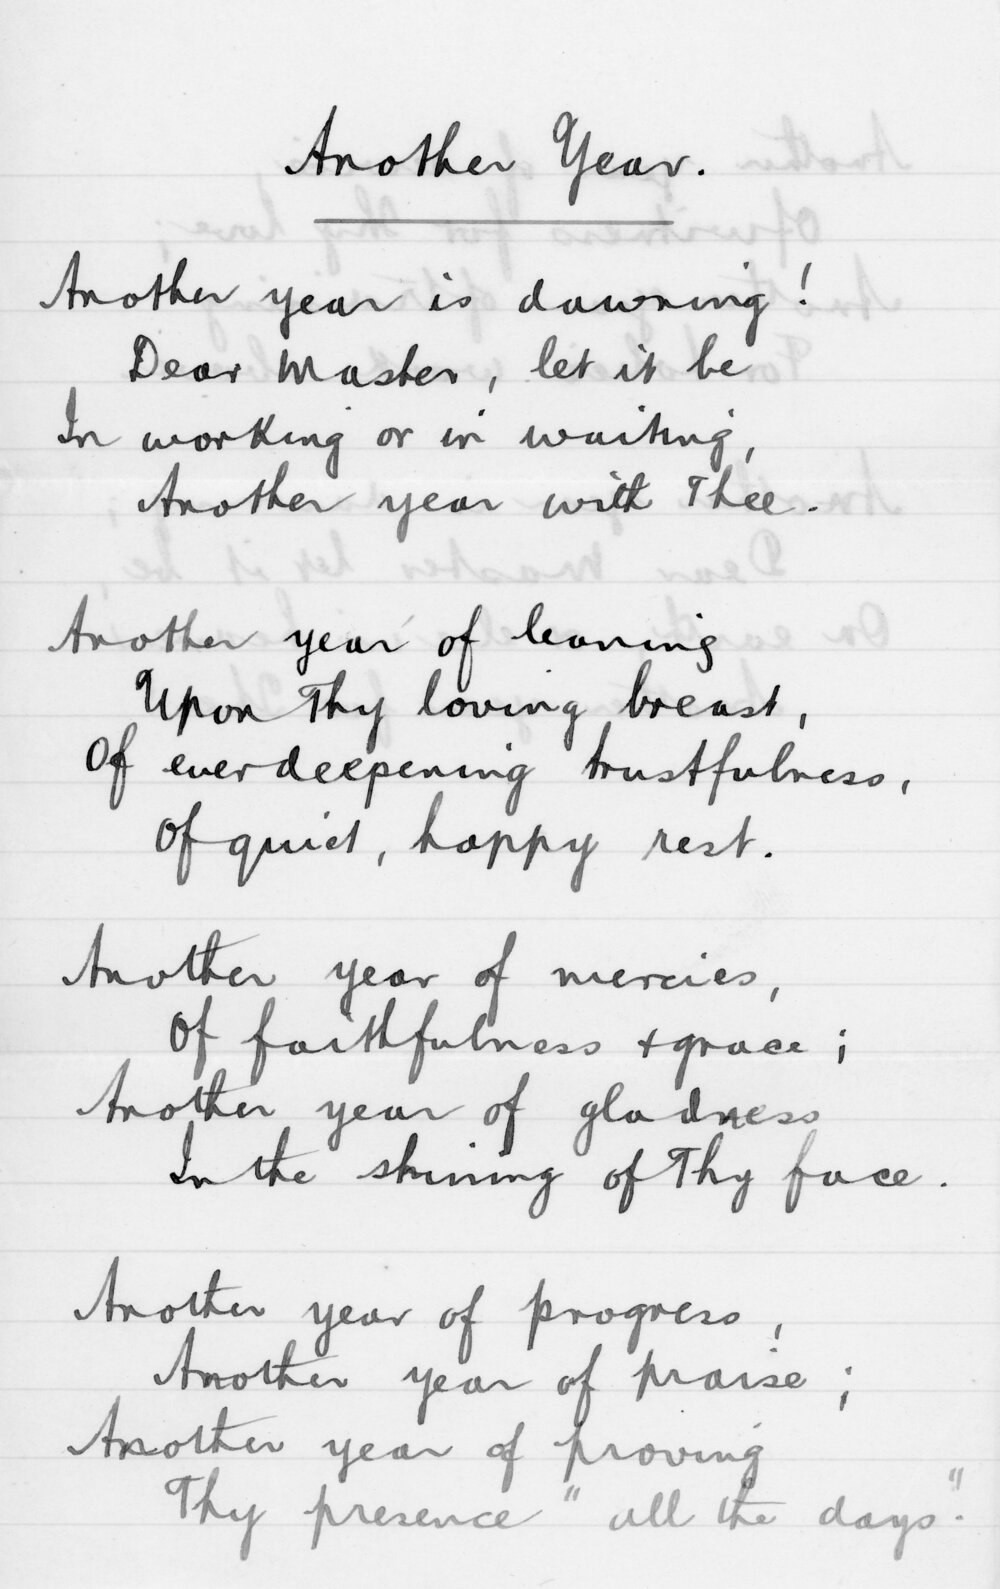 Another Year.
Another year is dawning!
Dear Master, let it be
In working or in waiting,
Another year with Thee.
Another year of leaning
Upon Thy loving breast,
Of everdeepening trustfulness,
Of quiet, happy rest.
Another year of mercies,
Of faithfulness + grace;
Another year of gladness
In the shining of Thy face.
Another year of progress,
Another year of praise;
Another year of proving
Thy presence "all the days".